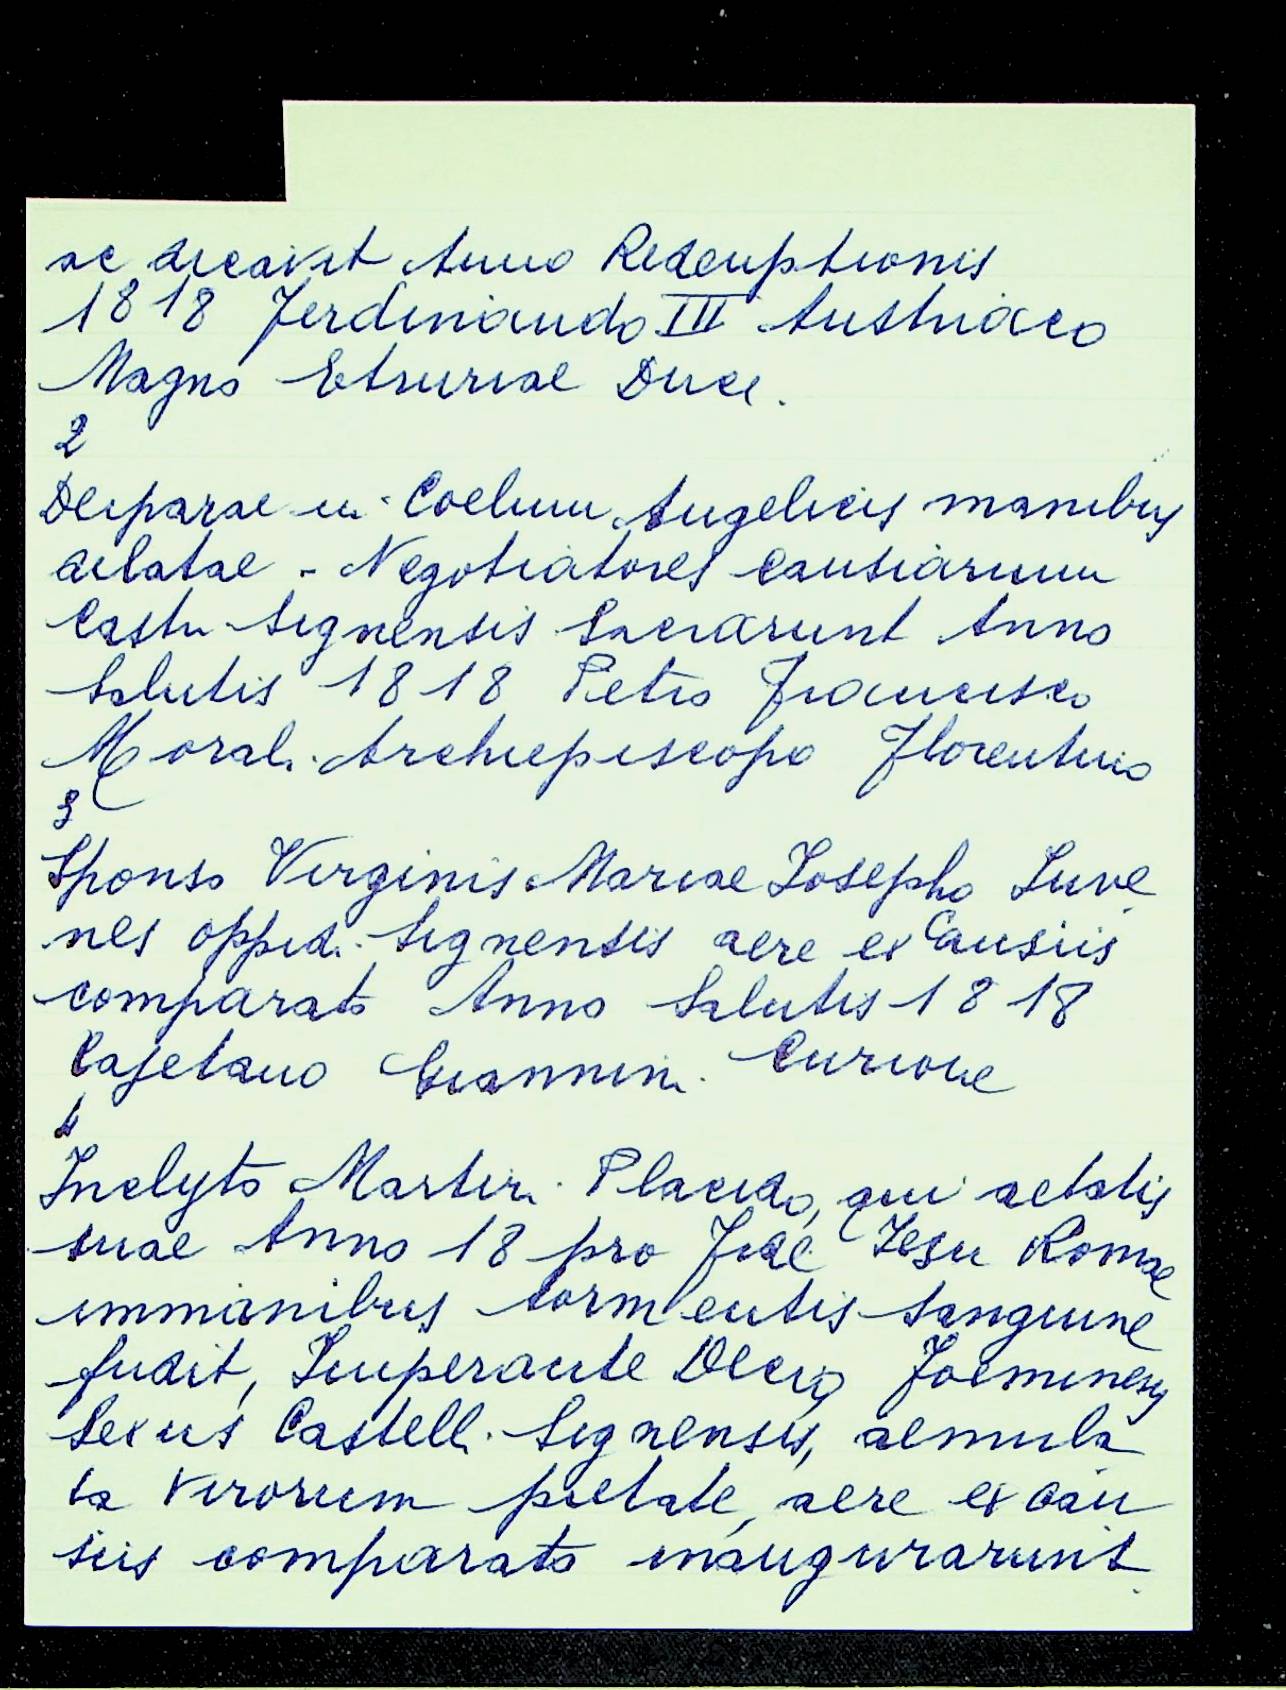 ac dicavit Anno Redemptionis
1818 Ferdinando III Austriaco
Magno Etruriae Duce.
2
Deiparae in Coelum Angelicis manibus
delatae - Negotiatores causiarum
Castri Signensis Sacrarunt Anno
Salutis 1818 Petro Francisco
Morali Archiepiscopo Florentino
3
Sponso Virginis Mariae Iosepho Iuve
nes oppidi Signensis aere ex Causiis
comparato Anno Salutis 1818
Cajetano Giannini Curione
4
Inclyto Martiri Placido, qui aetatis
suae Anno 18 pro Fide Iesu Romae
immanibus tormentis sanguine
fudit, Imperante Decio Foeminey
Sexus Castelli Signensis, aemula
ta virorum pietate, aere ex cau
siis comparato inaugurarunt